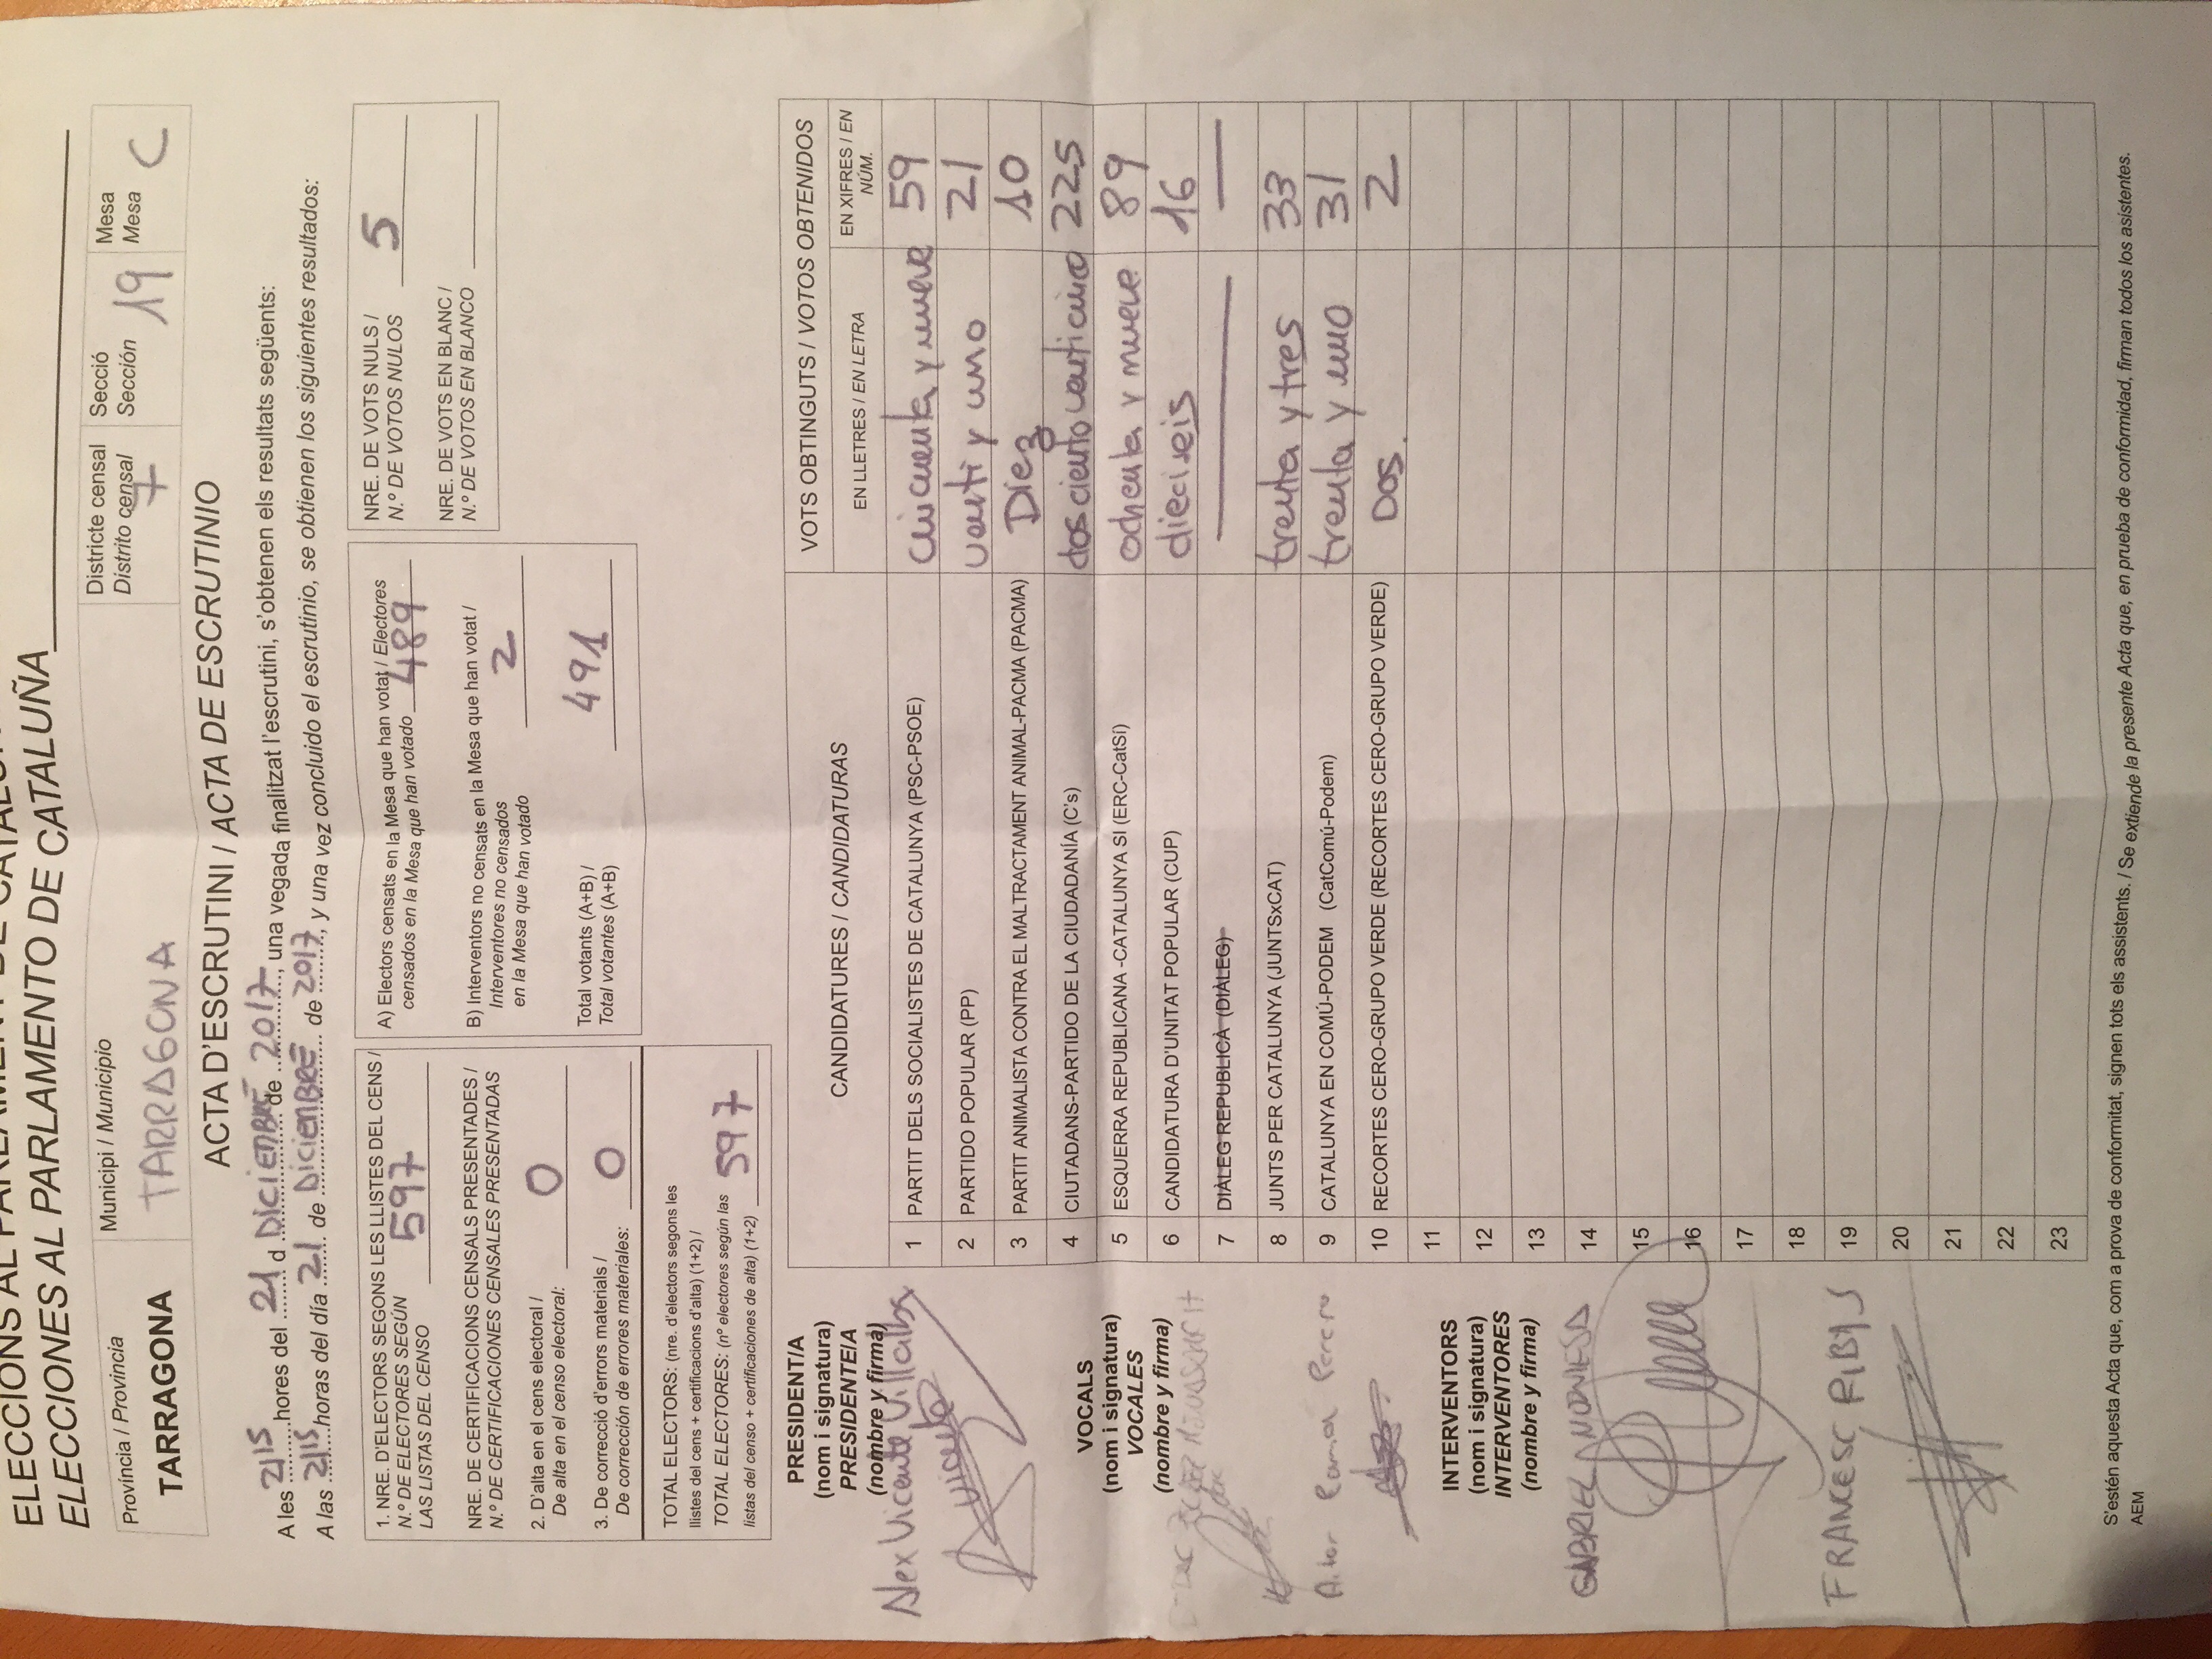 ELECCIONS AL PARLAMENT DE CATALUN
ELECCIONES AL PARLAMENTO DE CATALUÑA
Província / Provincia
TARRAGONA
Municipi / Municipio
TARRAGONA
Districte censal
Distrito censal
7
Secció
Sección
19
Mesa
Mesa
C
ACTA D'ESCRUTINI / ACTA DE ESCRUTINIO
A les 21 15 hores del 21 d DICIEMBRE de 2017, una vegada finalitzat l'escrutini, s'obtenen els resultats següents:
A las 21 15 horas del día 21 de DICIEMBRE de 2017, y una vez concluido el escrutinio, se obtienen los siguientes resultados:
1. NRE. D'ELECTORS SEGONS LES LLISTES DEL CENS /
N.º DE ELECTORES SEGÚN
LAS LISTAS DEL CENSO 597
NRE. DE CERTIFICACIONS CENSALS PRESENTADES /
N.º DE CERTIFICACIONES CENSALES PRESENTADAS
2. D'alta en el cens electoral /
De alta en el censo electoral: 0
3. De correcció d'errors materials /
De corrección de errores materiales: 0
TOTAL ELECTORS: (nre. d'electors segons les
llistes del cens + certificacions d'alta) (1+2) /
TOTAL ELECTORES: (nº electores según las
listas del censo + certificaciones de alta) (1+2) 597
A) Electors censats en la Mesa que han votat / Electores
censados en la Mesa que han votado 489
B) Interventors no censats en la Mesa que han votat /
Interventores no censados
en la Mesa que han votado 2
Total votants (A+B) /
Total votantes (A+B) 491
NRE. DE VOTS NULS /
N.º DE VOTOS NULOS 5
NRE. DE VOTS EN BLANC /
N.º DE VOTOS EN BLANCO
PRESIDENT/A
(nom i signatura)
PRESIDENTE/A
(nombre y firma)
Alex Vicente Villalba
Vicente
VOCALS
(nom i signatura)
VOCALES
(nombre y firma)
Aitor
INTERVENTORS
(nom i signatura)
INTERVENTORES
(nombre y firma)
GABRIEL
FRANCESC RIBAS
CANDIDATURES / CANDIDATURAS
VOTS OBTINGUTS / VOTOS OBTENIDOS
EN LLETRES / EN LETRA
EN XIFRES / EN
NÚM.
1 PARTIT DELS SOCIALISTES DE CATALUNYA (PSC-PSOE) cincuenta y nueve 59
2 PARTIDO POPULAR (PP) venti y uno 21
3 PARTIT ANIMALISTA CONTRA EL MALTRACTAMENT ANIMAL-PACMA (PACMA) Diez 10
4 CIUTADANS-PARTIDO DE LA CIUDADANÍA (C's) dos ciento venticinco 225
5 ESQUERRA REPUBLICANA -CATALUNYA SI (ERC-CatSí) ochenta y nueve 89
6 CANDIDATURA D'UNITAT POPULAR (CUP) dieciseis 16
7 DIÀLEG REPUBLICÀ (DIÀLEG)
8 JUNTS PER CATALUNYA (JUNTSxCAT) trenta y tres 33
9 CATALUNYA EN COMÚ-PODEM (CatComú-Podem) trenta y uno 31
10 RECORTES CERO-GRUPO VERDE (RECORTES CERO-GRUPO VERDE) Dos. 2
11
12
13
14
15
16
17
18
19
20
21
22
23
S'estén aquesta Acta que, com a prova de conformitat, signen tots els assistents. / Se extiende la presente Acta que, en prueba de conformidad, firman todos los asistentes.
AEM